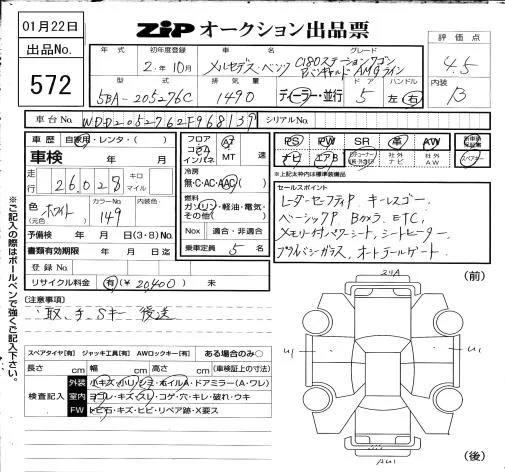 01月22日
ZIP オークション出品票
出品No.
572
年式
初年度登録
車名
グレード
評価点
2年10月
メルセデス・ベンツ
C180ステーションワゴン
アバンギャルド AMGライン
4.5
型式
排気量
ドア
ハンドル
内装
5BA-205276C
1490
ディーラー・並行
5
左右
B
車台No.
シリアルNo.
車歴
自家用・レンタ・( )
車検
年 月
走行
26,028
キロ
マイル
色
(元色)
ホワイト
カラーNo.
149
内装色
予備検 年 月 日(3・8)No.
書類有効期限 年 月 日
登録No.
リサイクル料金 有(¥20400) 未
フロア
コラム
インパネ
AT
MT
速
冷房
無・C・AC・AAC( )
燃料
ガソリン・軽油・電気・
その他( )
Nox 適合・非適合
乗車定員 5 名
PS
PW
SR
革
AW
ナビ
エアB
社外
ナビ
社外
AW
※上記太枠内は標準装備品
セールスポイント
レーダーセーフティP キーレスゴー
ベーシックP Boxラ ETC
メモリー付パワーシート、シートヒーター
プライバシーガラス、オートテールゲート
※ご記入の際はボールペンで強くご記入下さい。
(注意事項)
取、手、Sキー 後送
スペアタイヤ[有] ジャッキ工具[有] AWロックキー[有] ある場合のみ○
長さ cm 幅 cm 高さ cm (車検証上の寸法)
検査記入
外装 小キズ・小リ・シミ・ホイルA・ドアミラー(A・ワレ)
室内 ヨゴレ・キズ・スレ・コゲ・穴・キレ・破れ・ウキ
FW トビ石・キズ・ヒビ・リペア跡・X要ス
(前)
U1
U1
(後)